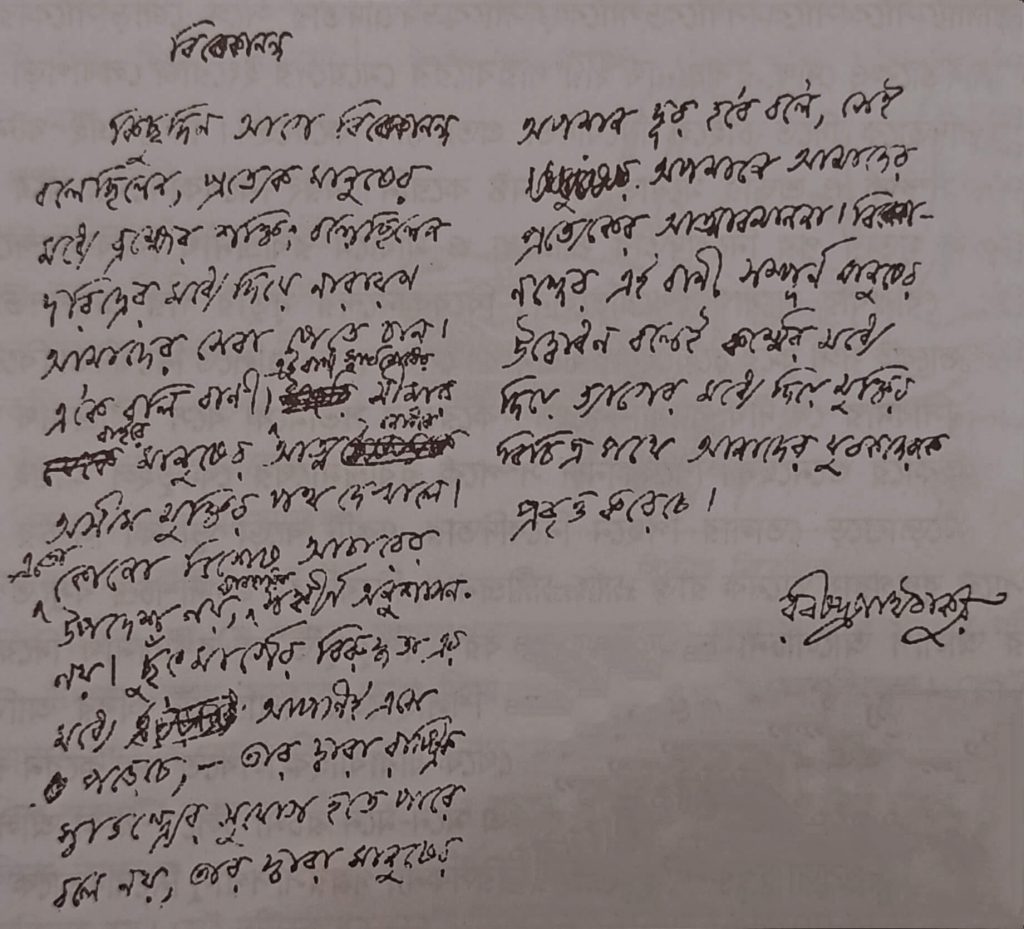 বিবেকানন্দ
কিছুদিন আগে বিবেকানন্দ
বলেছিলেন, প্রত্যেক মানুষের
মধ্যে ব্রহ্মের শক্তি; বলেছিলেন
দরিদ্রের মধ্যে দিয়ে নারায়ণ
আমাদের সেবা পেতে চান।
একে বলি বাণী। এই বাণী স্বার্থবোধের সীমার
বাইরে মানুষের আত্মবোধকে
অসীম মুক্তির পথ দেখালে।
এতো কোনো বিশেষ আচারের
উপদেশ নয়, ব্যবহারিক সঙ্কীর্ণ অনুশাসন
নয়। ছুঁৎমার্গের বিরুদ্ধতা এর
মধ্যে আপনিই এসে
পড়েচে,— তার দ্বারা রাষ্ট্রিক
স্বাতন্ত্র্যের সুযোগ হতে পারে
বলে নয়, তার দ্বারা মানুষের
অপমান দূর হবে বলে, সেই
অপমানে আমাদের
প্রত্যেকের আত্মাবমাননা। বিবেকা-
নন্দের এই বাণী সম্পূর্ণ মানুষের
উদ্বোধন বলেই কর্ম্মের মধ্যে
দিয়ে ত্যাগের মধ্যে দিয়ে মুক্তির
বিচিত্র পথে আমাদের যুবকদেরকে
প্রবৃত্ত করেচে।
রবীন্দ্রনাথ ঠাকুর